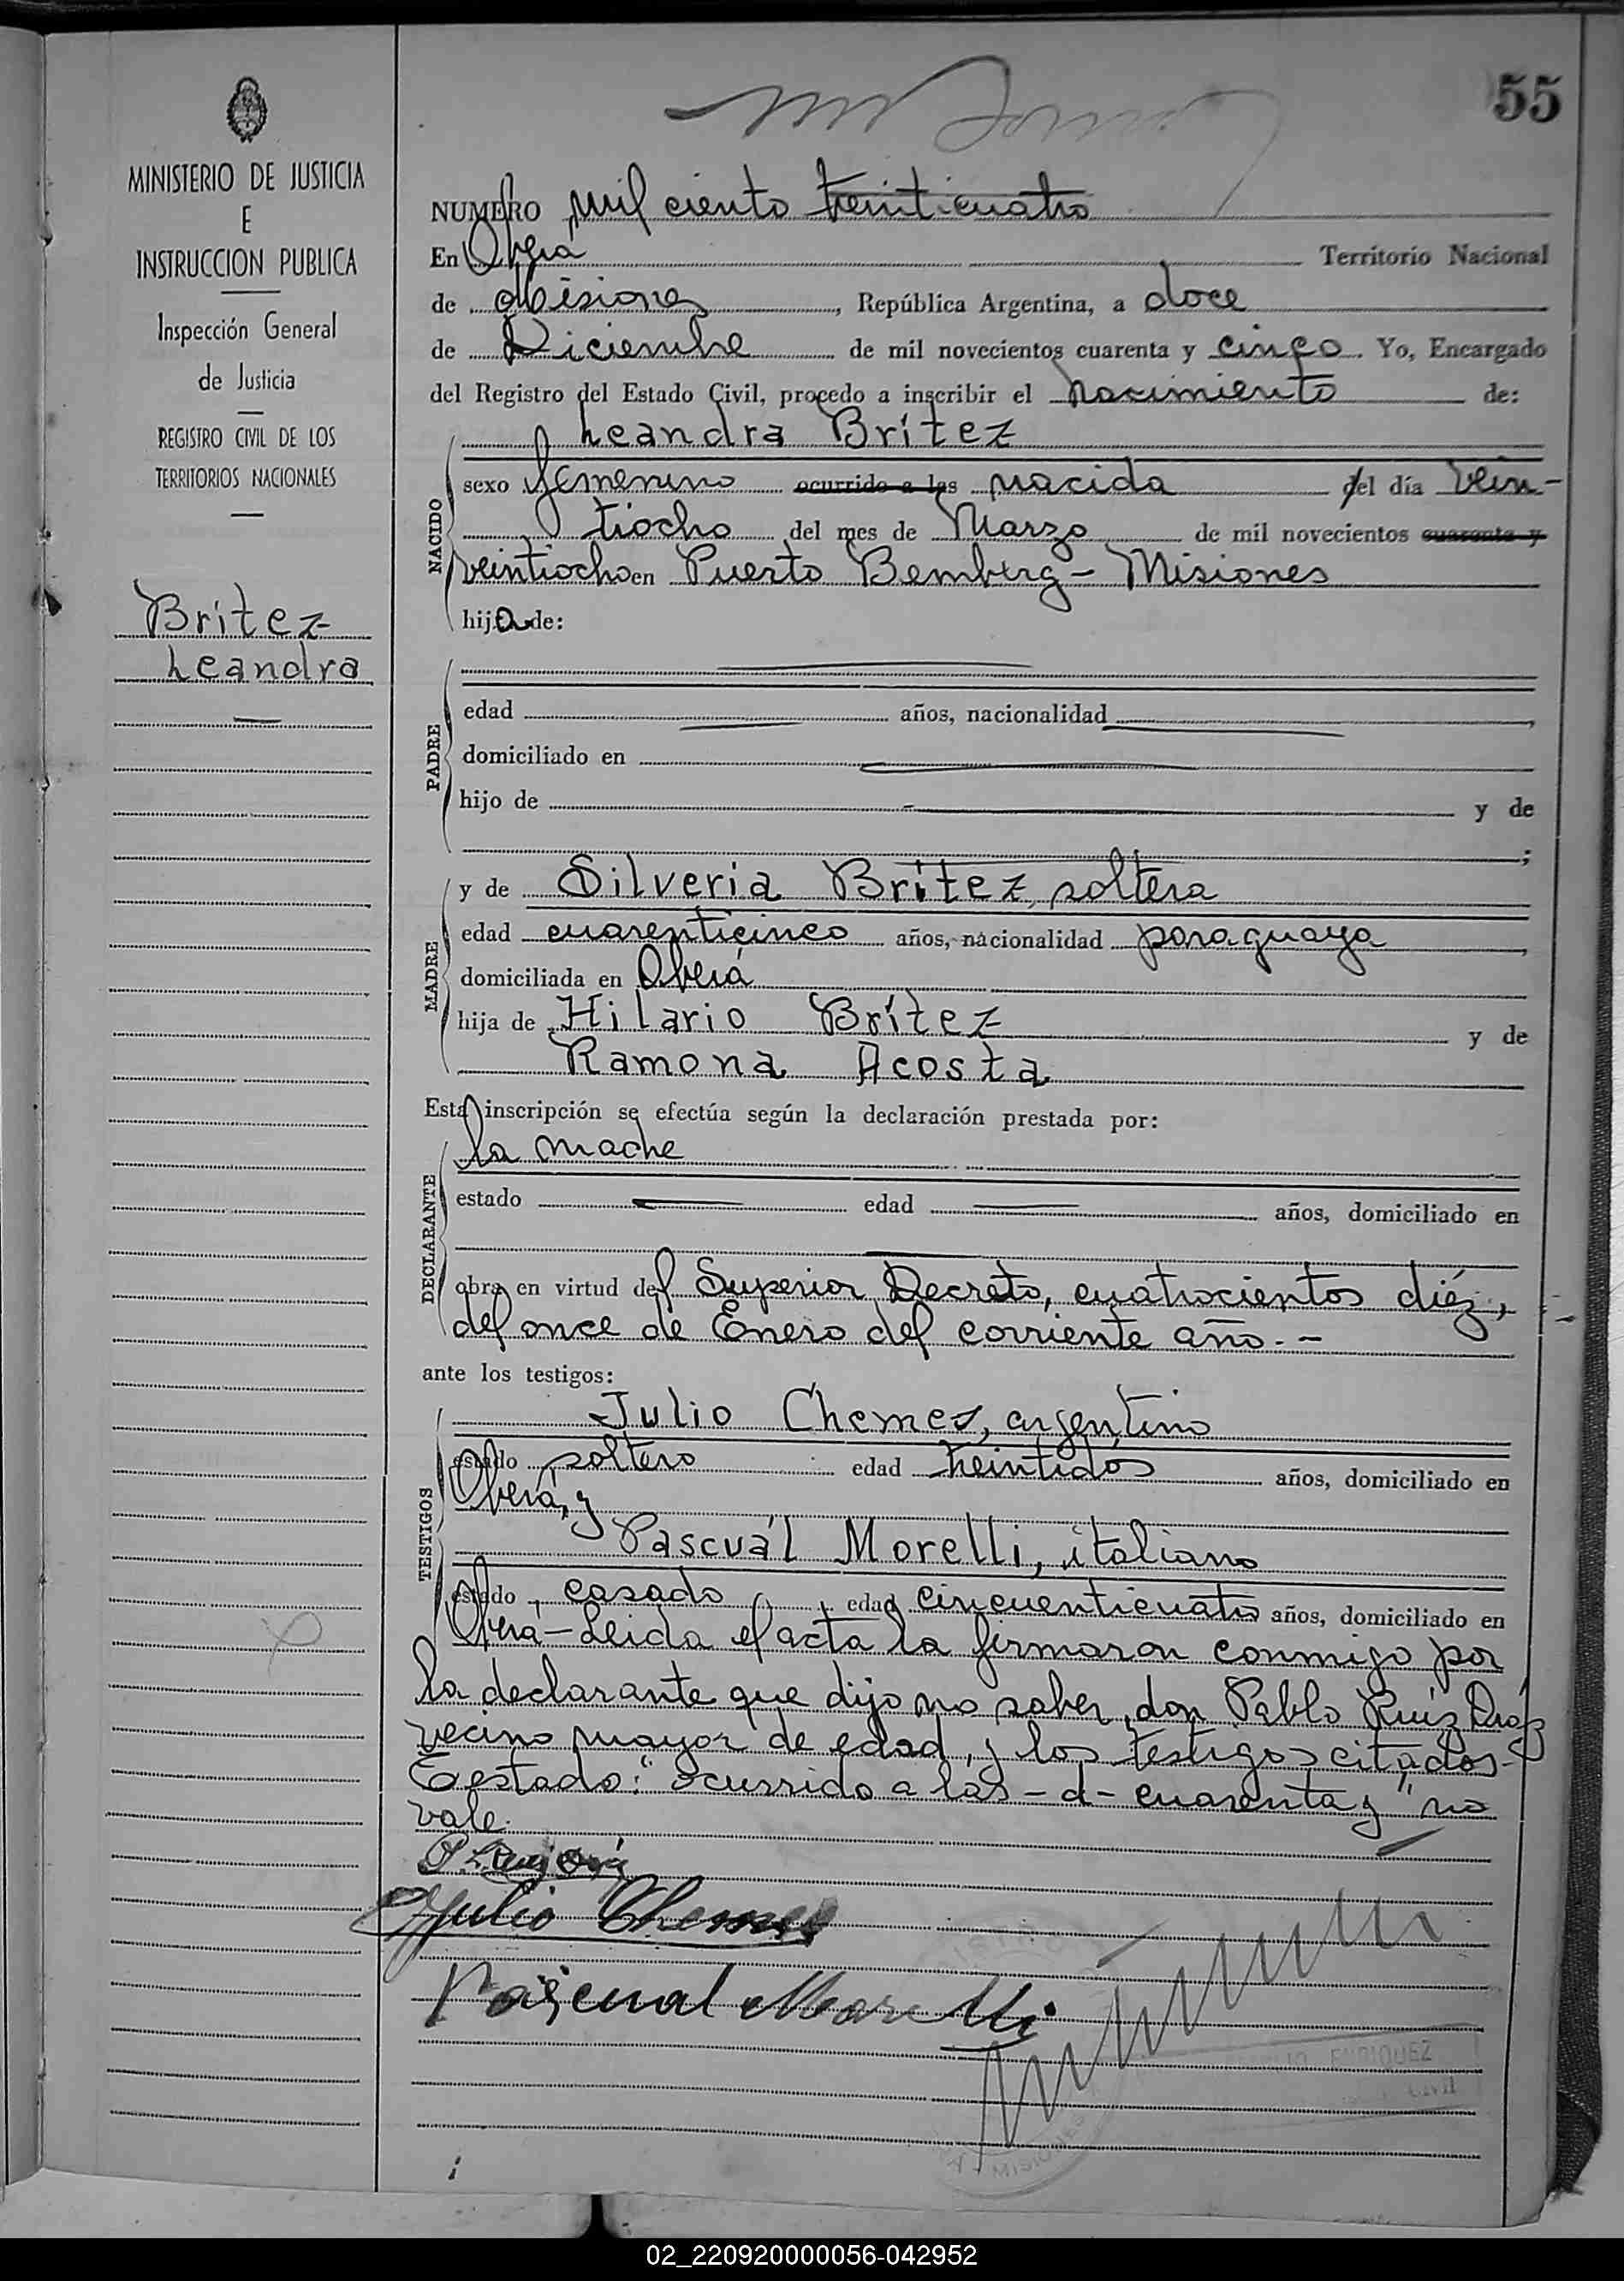 55
MINISTERIO DE JUSTICIA
E
INSTRUCCION PUBLICA
Inspección General
de Justicia
REGISTRO CIVIL DE LOS
TERRITORIOS NACIONALES
Brítez
Leandra
NUMERO mil ciento treinticuatro
En Oberá Territorio Nacional
de Misiones, República Argentina, a doce
de Diciembre de mil novecientos cuarenta y cinco. Yo, Encargado
del Registro del Estado Civil, procedo a inscribir el nacimiento de:
Leandra Brítez
NACIDO
sexo femenino ocurrido a las nacida del día vein-
tiocho del mes de Marzo de mil novecientos cuarenta y
veintiocho en Puerto Bemberg - Misiones
hija de:
PADRE
edad años, nacionalidad
domiciliado en
hijo de y de
;
MADRE
y de Silveria Brítez, soltera
edad cuarenticinco años, nacionalidad paraguaya
domiciliada en Oberá
hija de Hilario Brítez y de
Ramona Acosta
Esta inscripción se efectúa según la declaración prestada por:
DECLARANTE
la madre
estado edad años, domiciliado en
obra en virtud del Superior Decreto, cuatrocientos diéz,
del once de Enero del corriente año.-
ante los testigos:
TESTIGOS
Julio Chemes, argentino
estado soltero edad treintidós años, domiciliado en
Oberá, y
Pascuál Morelli, italiano
estado, casado, edad cincuenticuatro años, domiciliado en
Oberá - Leida el acta la firmaron conmigo por
la declarante que dijo no saber, don Pablo Ruíz
vecino mayor de edad, y los testigos citados-
Testado: "ocurrido a las - d - cuarenta y" no
vale.
Julio Chemes
Pascual Morelli
ENRIQUEZ
Civil
MISIONES
02_220920000056-042952